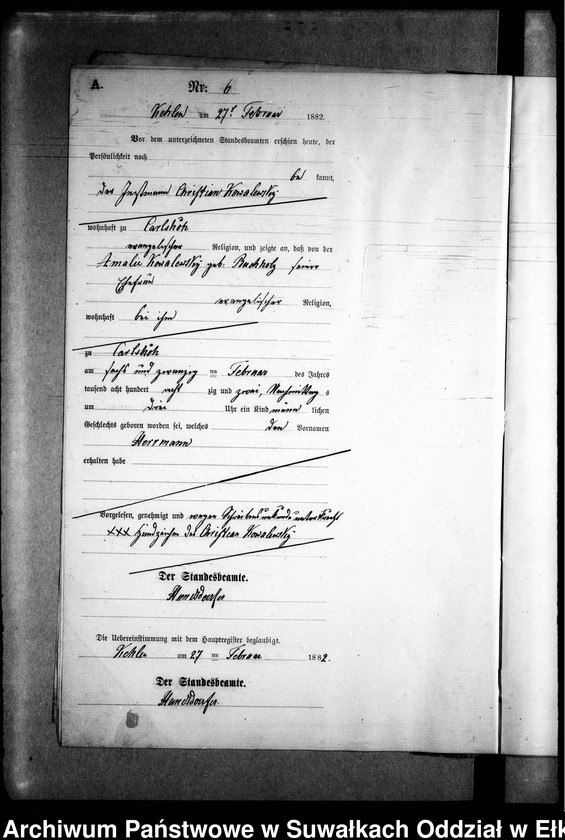 A.
Nr: 6
Kehlen am 27t Februar 1882.
Vor dem unterzeichneten Standesbeamten erschien heute, der
Persönlichkeit nach
be kannt,
der Instmann Christian Kowalewsky
wohnhaft zu Carlshöh
evangelischer Religion, und zeigte an, daß von der
Amalie Kowalewsky geb. Buchholz seiner
Ehefrau
evangelischer Religion,
wohnhaft bei ihm
zu Carlshöh
am sechs und zwanzig ten Februar des Jahres
tausend acht hundert acht zig und zwei, Nachmittag s
um drei Uhr ein Kind männ lichen
Geschlechts geboren worden sei, welches den Vornamen
Herrmann
erhalten habe
Vorgelesen, genehmigt und wegen Schreibensunkunde unterkreuzt
XXX Handzeichen des Christian Kowalewsky
Der Standesbeamte.
Die Uebereinstimmung mit dem Hauptregister beglaubigt.
Kehlen am 27 ten Februar 1882.
Der Standesbeamte.
Archiwum Państwowe w Suwałkach Oddział w Ełk